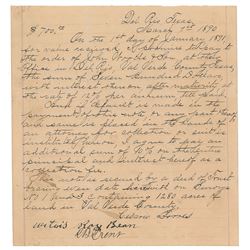 Del Rio Texas
$700.00 March 1st 1890
On the 1st day of January 1891
for value received, I promise to pay to
the order of John at their
office in Del Rio, Val Verde County Texas,
the sum of Seven Hundred Dollars,
with interest thereon after maturity at
the rate of
And if default is made in the
payment of this note or any part thereof
and same is placed in the hands of
an attorney for collection or suit is
instituted thereon, I agree to pay an
additional sum of 10% on the
principal and interest hereof as a
collection fee.
This note is secured by a deed of trust
bearing even date herewith on Surveys
No 1 and 3 containing 1280 acres of
land in Val Verde County.
Torres
witness Roy Bean